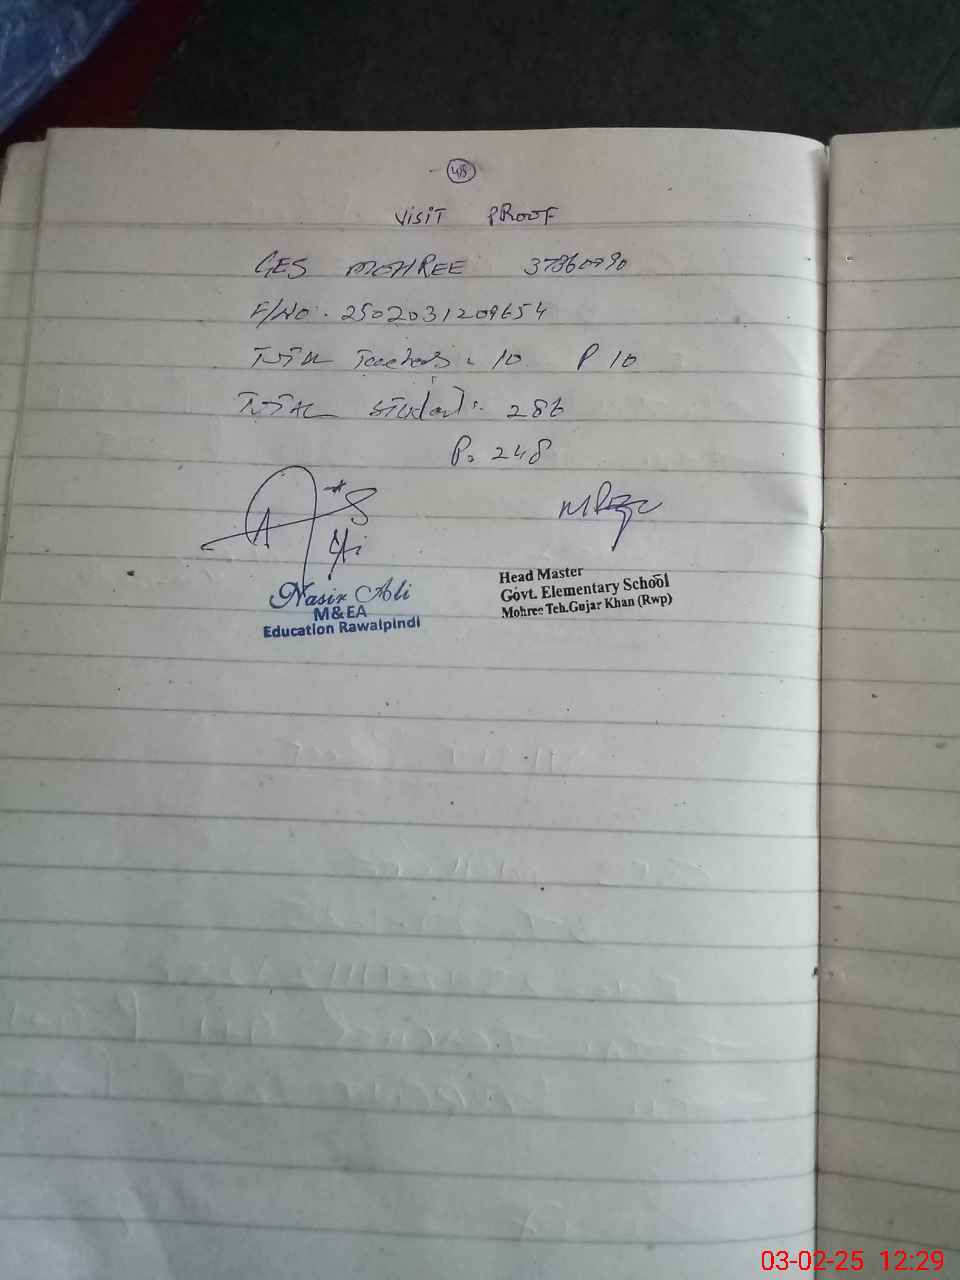 48
VISIT PROOF
GES MOHREE 37360790
F/No. 2502031209654
Total Teachers: 10 P 10
Total Students: 286
P. 248
Nasir Ali
M&EA
Education Rawalpindi
Head Master
Govt. Elementary School
Mohree Teh.Gujar Khan (Rwp)
03-02-25 12:29